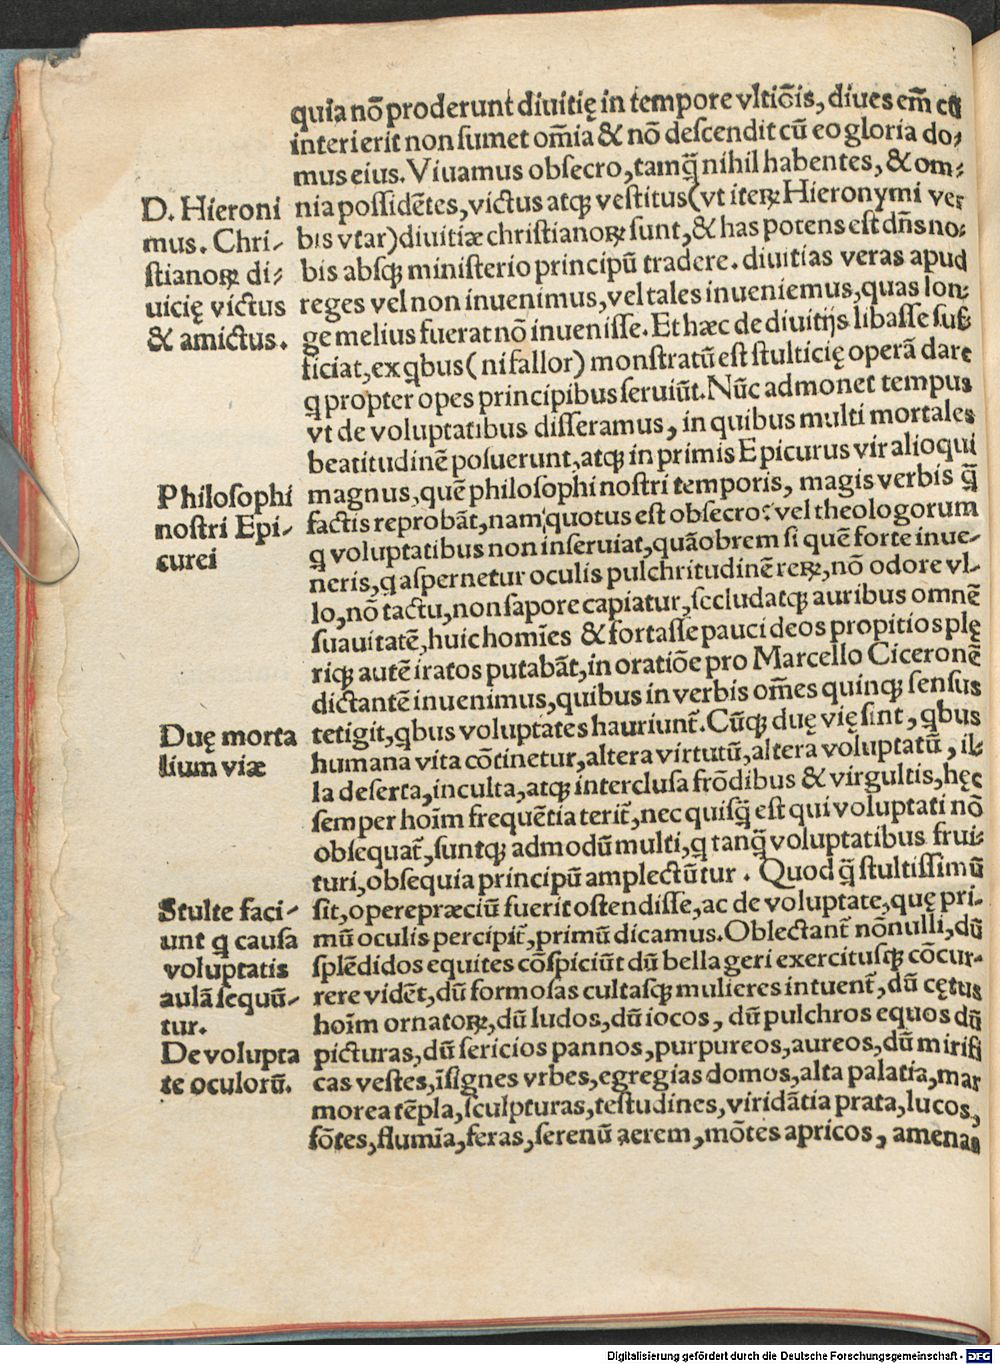 quia nō proderunt diuitię in tempore vltiōis, diues em̄ cū
interierit non sumet om̄ia & nō descendit cū eo gloria do-
mus eius. Viuamus obsecro, tamq̄ nihil habentes, & om-
nia possidētes, victus atqꝫ vestitus (vt iteꝝ Hieronymi ver
bis vtar) diuitiæ christianoꝝ sunt, & has potens est dn̄s no-
bis absqꝫ ministerio principū tradere. diuitias veras apud
reges vel non inuenimus, vel tales inueniemus, quas lon-
ge melius fuerat nō inuenisse. Et hæc de diuitijs libasse suf
ficiat, ex qbus (ni fallor) monstratū est stulticię operā dare
q propter opes principibus seruiūt. Nūc admonet tempus
vt de voluptatibus disseramus, in quibus multi mortales
beatitudinē posuerunt, atqꝫ in primis Epicurus vir alioqui
magnus, quē philosophi nostri temporis, magis verbis q̄
factis reprobāt, nam quotus est obsecro? vel theologorum
q voluptatibus non inseruiat, quāobrem si quē forte inue-
neris, q aspernetur oculis pulchritudinē reꝝ, nō odore vl-
lo, nō tactu, non sapore capiatur, secludatqꝫ auribus omnē
suauitatē, huic homīes & fortasse pauci deos propitios plę
riqꝫ autē iratos putabāt, in oratiōe pro Marcello Ciceronē
dictantē inuenimus, quibus in verbis om̄es quinqꝫ sensus
tetigit, qbus voluptates hauriunt̄. Cūqꝫ duę vię sint, qbus
humana vita cōtinetur, altera virtutū, altera voluptatū, il-
la deserta, inculta, atqꝫ interclusa frōdibus & virgultis, hęc
semper hoīm frequētia terit̄, nec quisq̄ est qui voluptati nō
obsequat̄, suntqꝫ admodū multi, q tanq̄ voluptatibus frui-
turi, obsequia principū amplectūtur. Quod q̄ stultissimū
sit, operepræciū fuerit ostendisse, ac de voluptate, quę pri-
mū oculis percipit̄, primū dicamus. Oblectant̄ nōnulli, dū
splēdidos equites cōspiciūt dū bella geri exercitusqꝫ cōcur-
rere vidēt, dū formosas cultasqꝫ mulieres intuent̄, dū cętus
hoīm ornatoꝝ, dū ludos, dū iocos, dū pulchros equos dū
picturas, dū sericios pannos, purpureos, aureos, dū mirifi
cas vestes, īsignes vrbes, egregias domos, alta palatia, mar
morea tēpla, sculpturas, testudines, viridātia prata, lucos,
fōtes, flumīa, feras, serenū aerem, mōtes apricos, amenas
D. Hieroni
mus. Chri-
stianoꝝ di-
uicię victus
& amictus.
Philosophi
nostri Epi-
curei
Duę morta
lium viæ
Stulte faci-
unt q causa
voluptatis
aulā sequū-
tur.
De volupta
te oculorū.
Digitalisierung gefördert durch die Deutsche Forschungsgemeinschaft - DFG